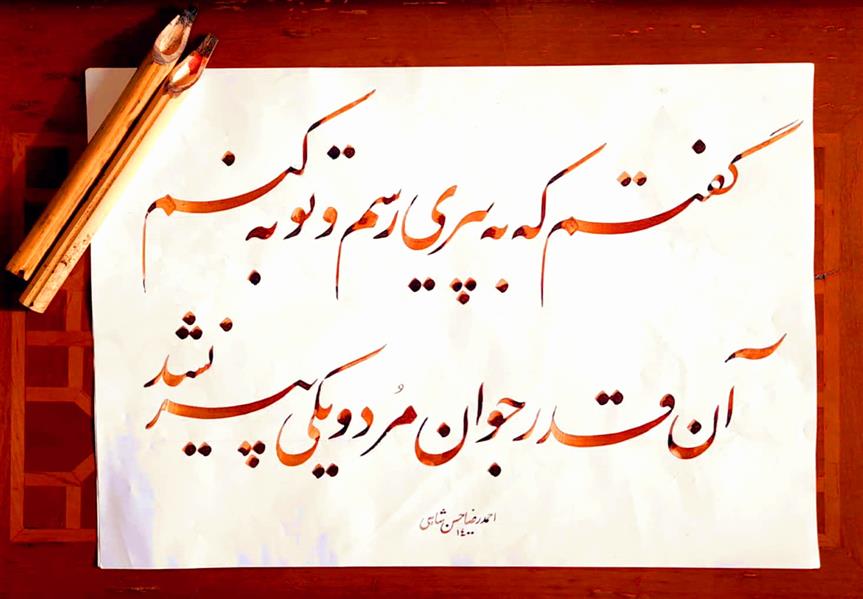 گفتم که به پیری رسم و توبه کنم
آن قدر جوان مُرد و یکی پیر نشد
احمدرضا حسن شاهی
۱۴۰۰